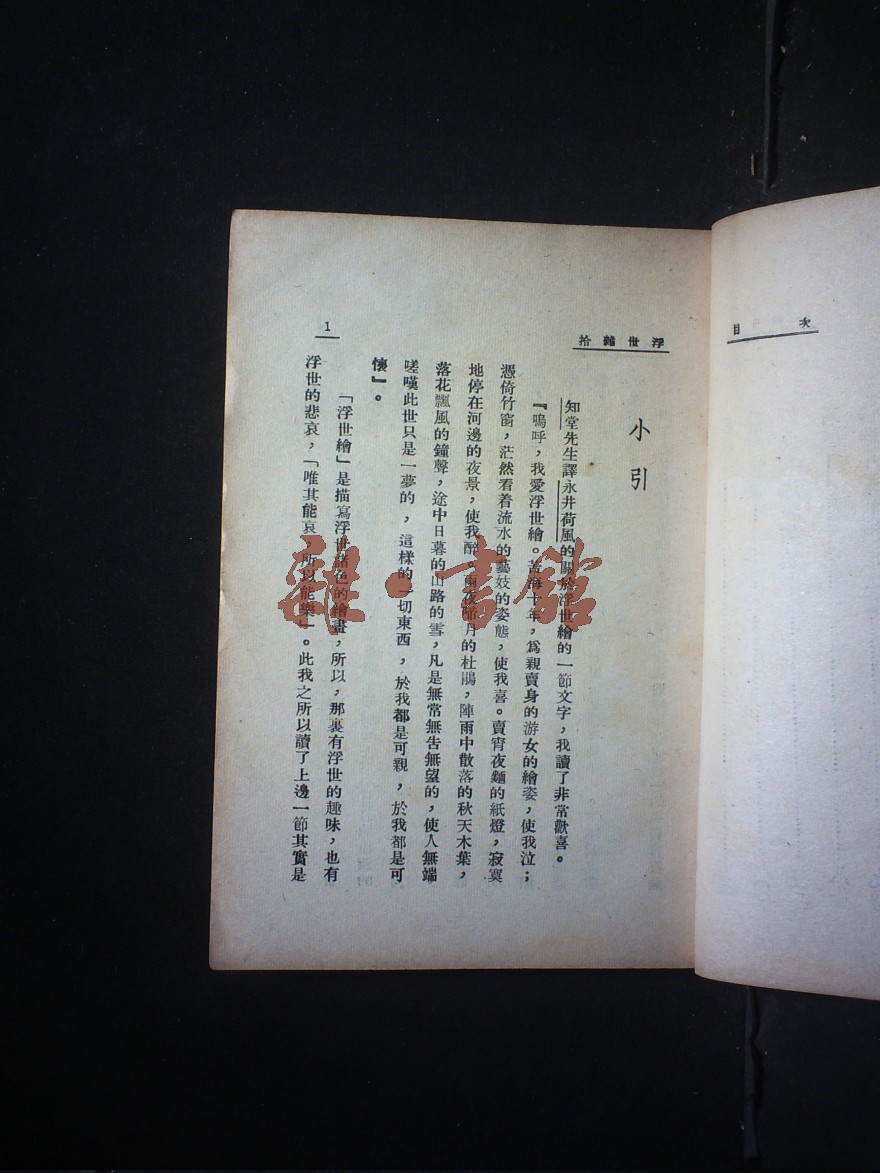 次目
浮世雜拾
小引
知堂先生譯永井荷風的關於浮世繪的一節文字，我讀了非常歡喜。
『嗚呼，我愛浮世繪。苦海十年，爲親賣身的游女的繪姿，使我泣；
憑倚竹窗，茫然看着流水的藝妓的姿態，使我喜。賣宵夜麵的紙燈，寂寞
地停在河邊的夜景，使我醉。雨夜啼月的杜鵑，陣雨中散落的秋天木葉，
落花飄風的鐘聲，途中日暮的山路的雪，凡是無常無告無望的，使人無端
嗟嘆此世只是一夢的，這樣的一切東西，於我都是可親，於我都是可
懷』。
「浮世繪」是描寫浮世諸色的繪畫，所以，那裏有浮世的趣味，也有
浮世的悲哀，「唯其能哀，所以能樂」。此我之所以讀了上邊一節其實是
1
雜·書館